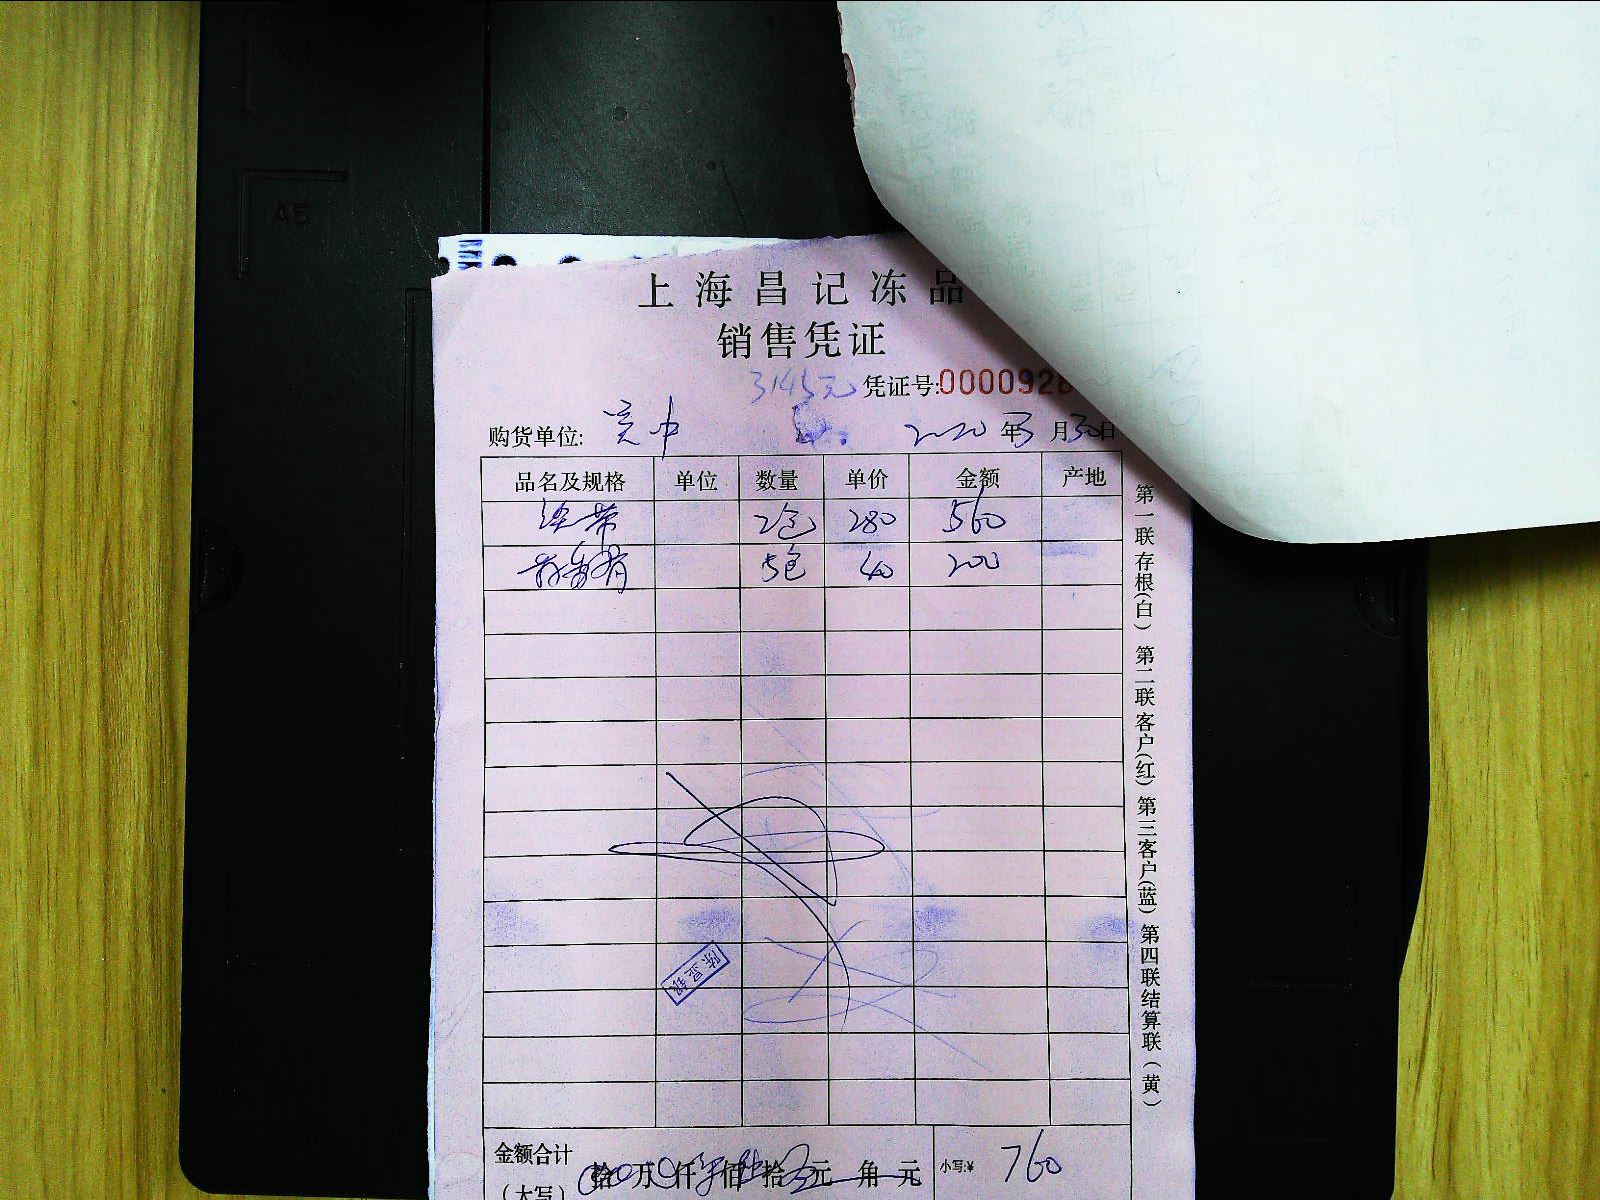 A5
上海昌记冻品
销售凭证
3145元 凭证号:000092
购货单位: 2020年3月30日
品名及规格 单位 数量 单价 金额 产地
2包 280 560
5包 40 200
第一联存根(白) 第二联客户(红) 第三客户(蓝) 第四联结算联(黄)
金额合计
(大写) 拾 万 仟 佰 拾 元 角 元 小写:¥ 760